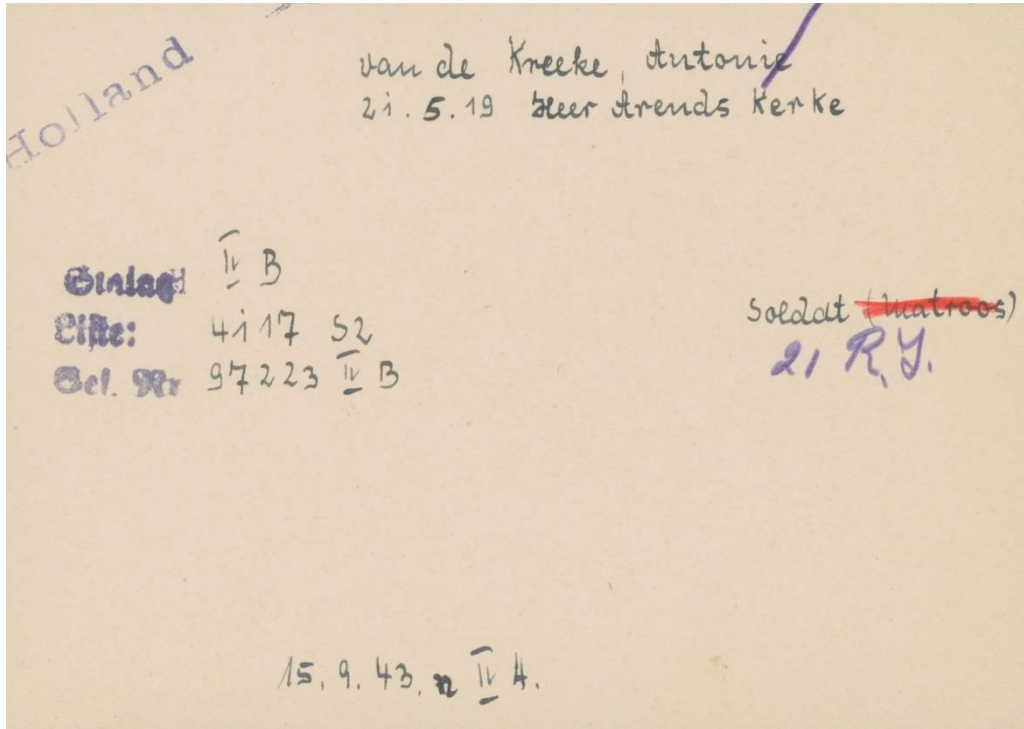 Holland
van de Kreeke, Antonie
21.5.19 Heer Arends Kerke
Stalag IV B
Liste: 4117 S2
Gef. Nr 97223 IV B
Soldat (Matroos)
21 R.I.
15.9.43. n IV A.